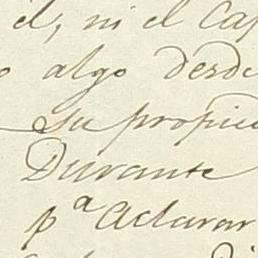 el, ni el Cap
o algo desde
su propie
Durante
p.ª aclarar